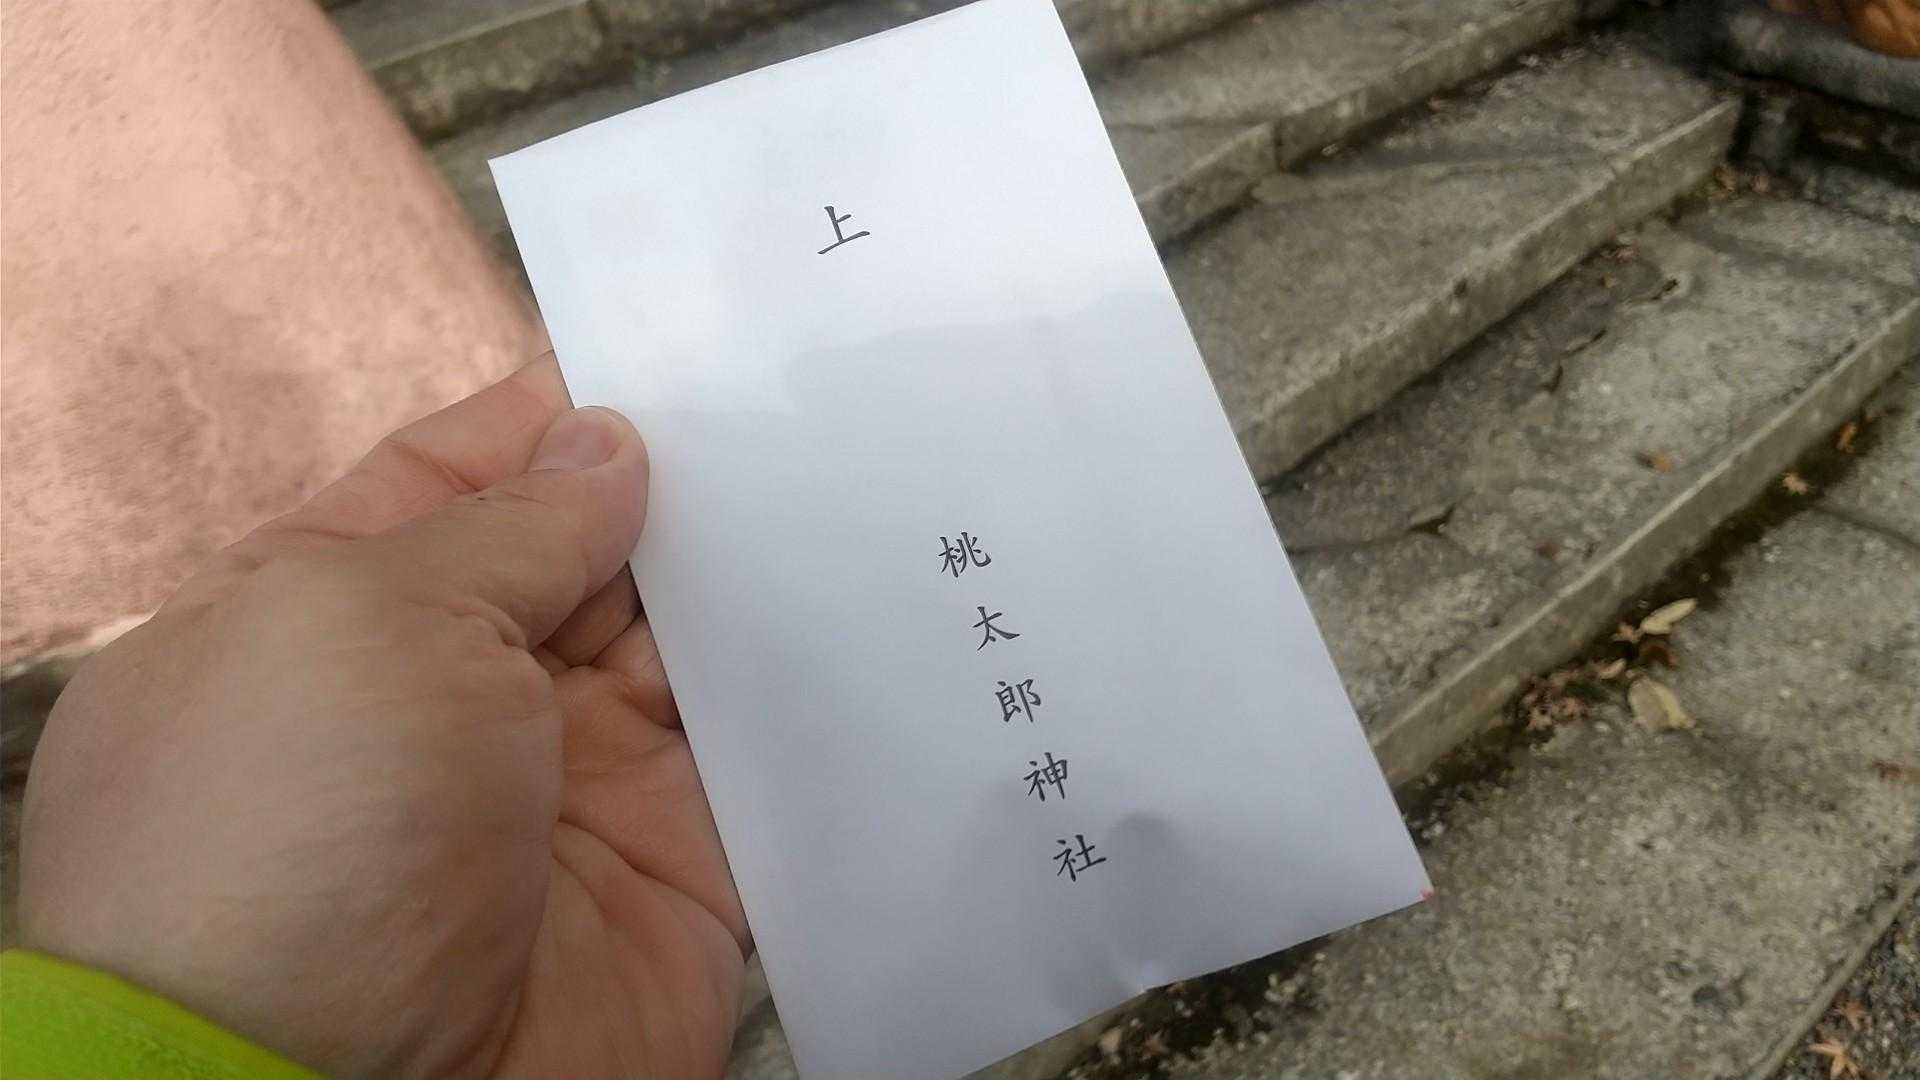 上
桃太郎神社